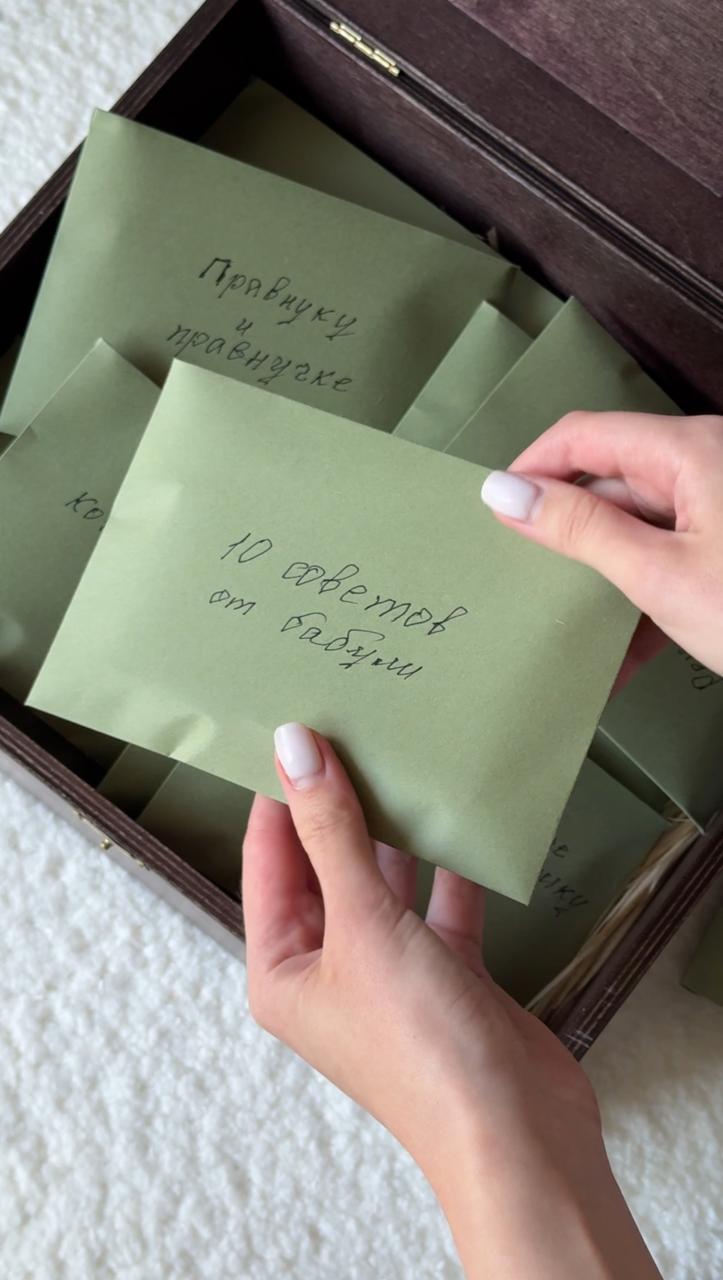 Правнуку
и
правнучке
10 советов
от бабули